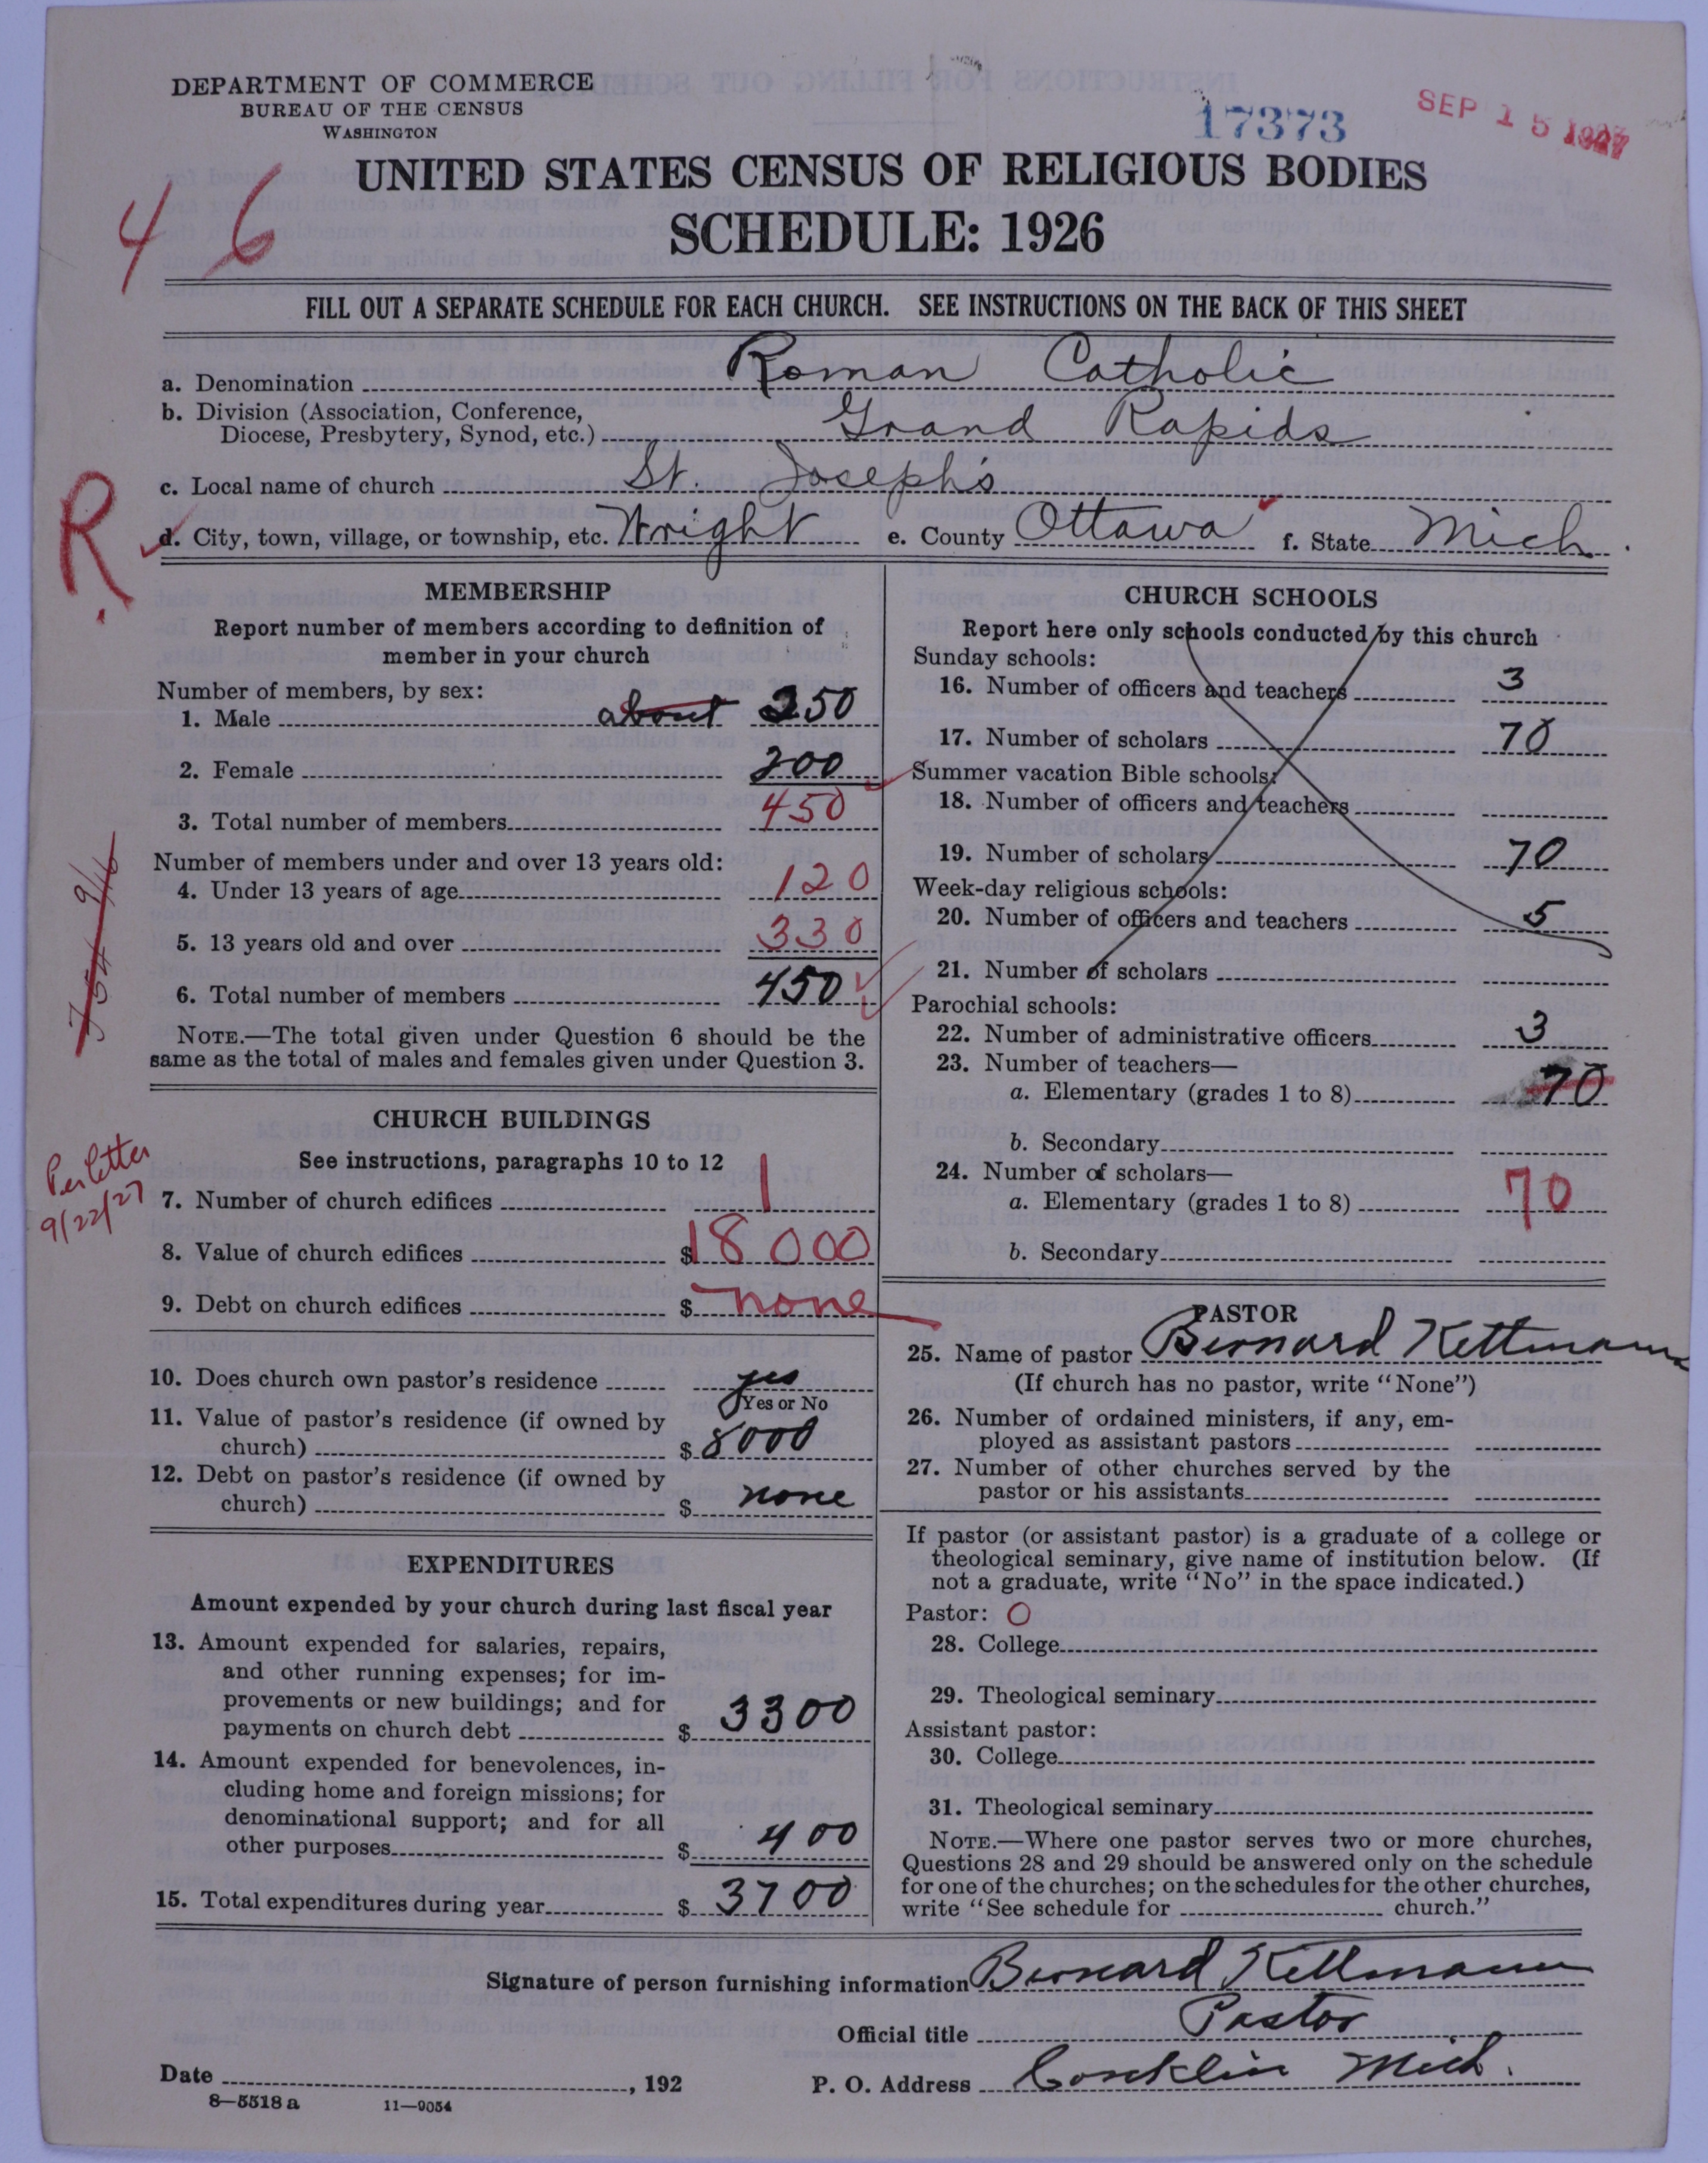 DEPARTMENT OF COMMERCE
BUREAU OF THE CENSUS
WASHINGTON
17373
SEP 15 1927
46
UNITED STATES CENSUS OF RELIGIOUS BODIES
SCHEDULE: 1926
FILL OUT A SEPARATE SCHEDULE FOR EACH CHURCH. SEE INSTRUCTIONS ON THE BACK OF THIS SHEET
a. Denomination Roman Catholic
b. Division (Association, Conference,
Diocese, Presbytery, Synod, etc.) Grand Rapids
c. Local name of church St. Joseph's
R.
d. City, town, village, or township, etc. Wright e. County Ottawa f. State Mich.
MEMBERSHIP
Report number of members according to definition of
member in your church
Number of members, by sex:
1. Male about 250
2. Female 200
3. Total number of members 450
Number of members under and over 13 years old:
4. Under 13 years of age 120
5. 13 years old and over 330
6. Total number of members 450
NOTE.—The total given under Question 6 should be the
same as the total of males and females given under Question 3.
9/16
CHURCH BUILDINGS
See instructions, paragraphs 10 to 12
Per letter
9/22/27
7. Number of church edifices 1
8. Value of church edifices $ 18000
9. Debt on church edifices $ none
10. Does church own pastor's residence yes
Yes or No
11. Value of pastor's residence (if owned by
church) $ 8000
12. Debt on pastor's residence (if owned by
church) $ none
EXPENDITURES
Amount expended by your church during last fiscal year
13. Amount expended for salaries, repairs,
and other running expenses; for im-
provements or new buildings; and for
payments on church debt $ 3300
14. Amount expended for benevolences, in-
cluding home and foreign missions; for
denominational support; and for all
other purposes $ 400
15. Total expenditures during year $ 3700
CHURCH SCHOOLS
Report here only schools conducted by this church
Sunday schools:
16. Number of officers and teachers 3
17. Number of scholars 70
Summer vacation Bible schools:
18. Number of officers and teachers
19. Number of scholars 70
Week-day religious schools:
20. Number of officers and teachers 5
21. Number of scholars
Parochial schools:
22. Number of administrative officers 3
23. Number of teachers—
a. Elementary (grades 1 to 8) 70
b. Secondary
24. Number of scholars—
a. Elementary (grades 1 to 8) 70
b. Secondary
PASTOR
25. Name of pastor Bernard Kettmann
(If church has no pastor, write "None")
26. Number of ordained ministers, if any, em-
ployed as assistant pastors
27. Number of other churches served by the
pastor or his assistants
If pastor (or assistant pastor) is a graduate of a college or
theological seminary, give name of institution below. (If
not a graduate, write "No" in the space indicated.)
Pastor: O
28. College
29. Theological seminary
Assistant pastor:
30. College
31. Theological seminary
NOTE.—Where one pastor serves two or more churches,
Questions 28 and 29 should be answered only on the schedule
for one of the churches; on the schedules for the other churches,
write "See schedule for church."
Signature of person furnishing information Bernard Kettmann
Official title Pastor
Date , 192 P. O. Address Conklin Mich.
8—5518 a 11—9054